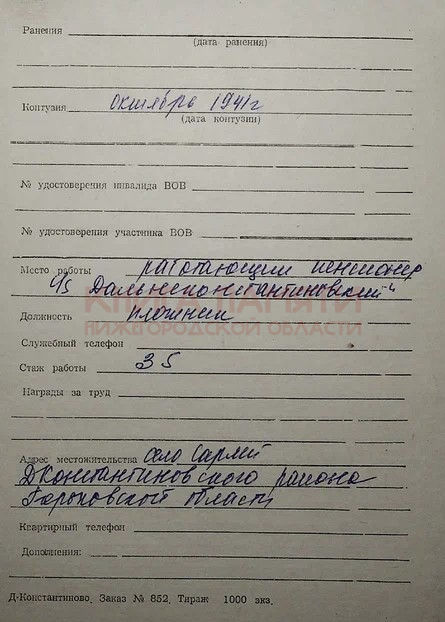 Ранения
(дата ранения)
Контузия октябрь 1941г
(дата контузии)
№ удостоверения инвалида ВОВ
№ удостоверения участника ВОВ
Место работы работающий пенсионер
Дальнеконстантиновский
КНИГА ПАМЯТИ
Должность плотник
НИЖЕГОРОДСКОЙ ОБЛАСТИ
Служебный телефон
Стаж работы 35
Награды за труд
Адрес местожительства село Сарлей
ДКонстантиновского района
Горьковской области
Квартирный телефон
Дополнения:
Д-Константиново. Заказ № 852. Тираж 1000 экз.